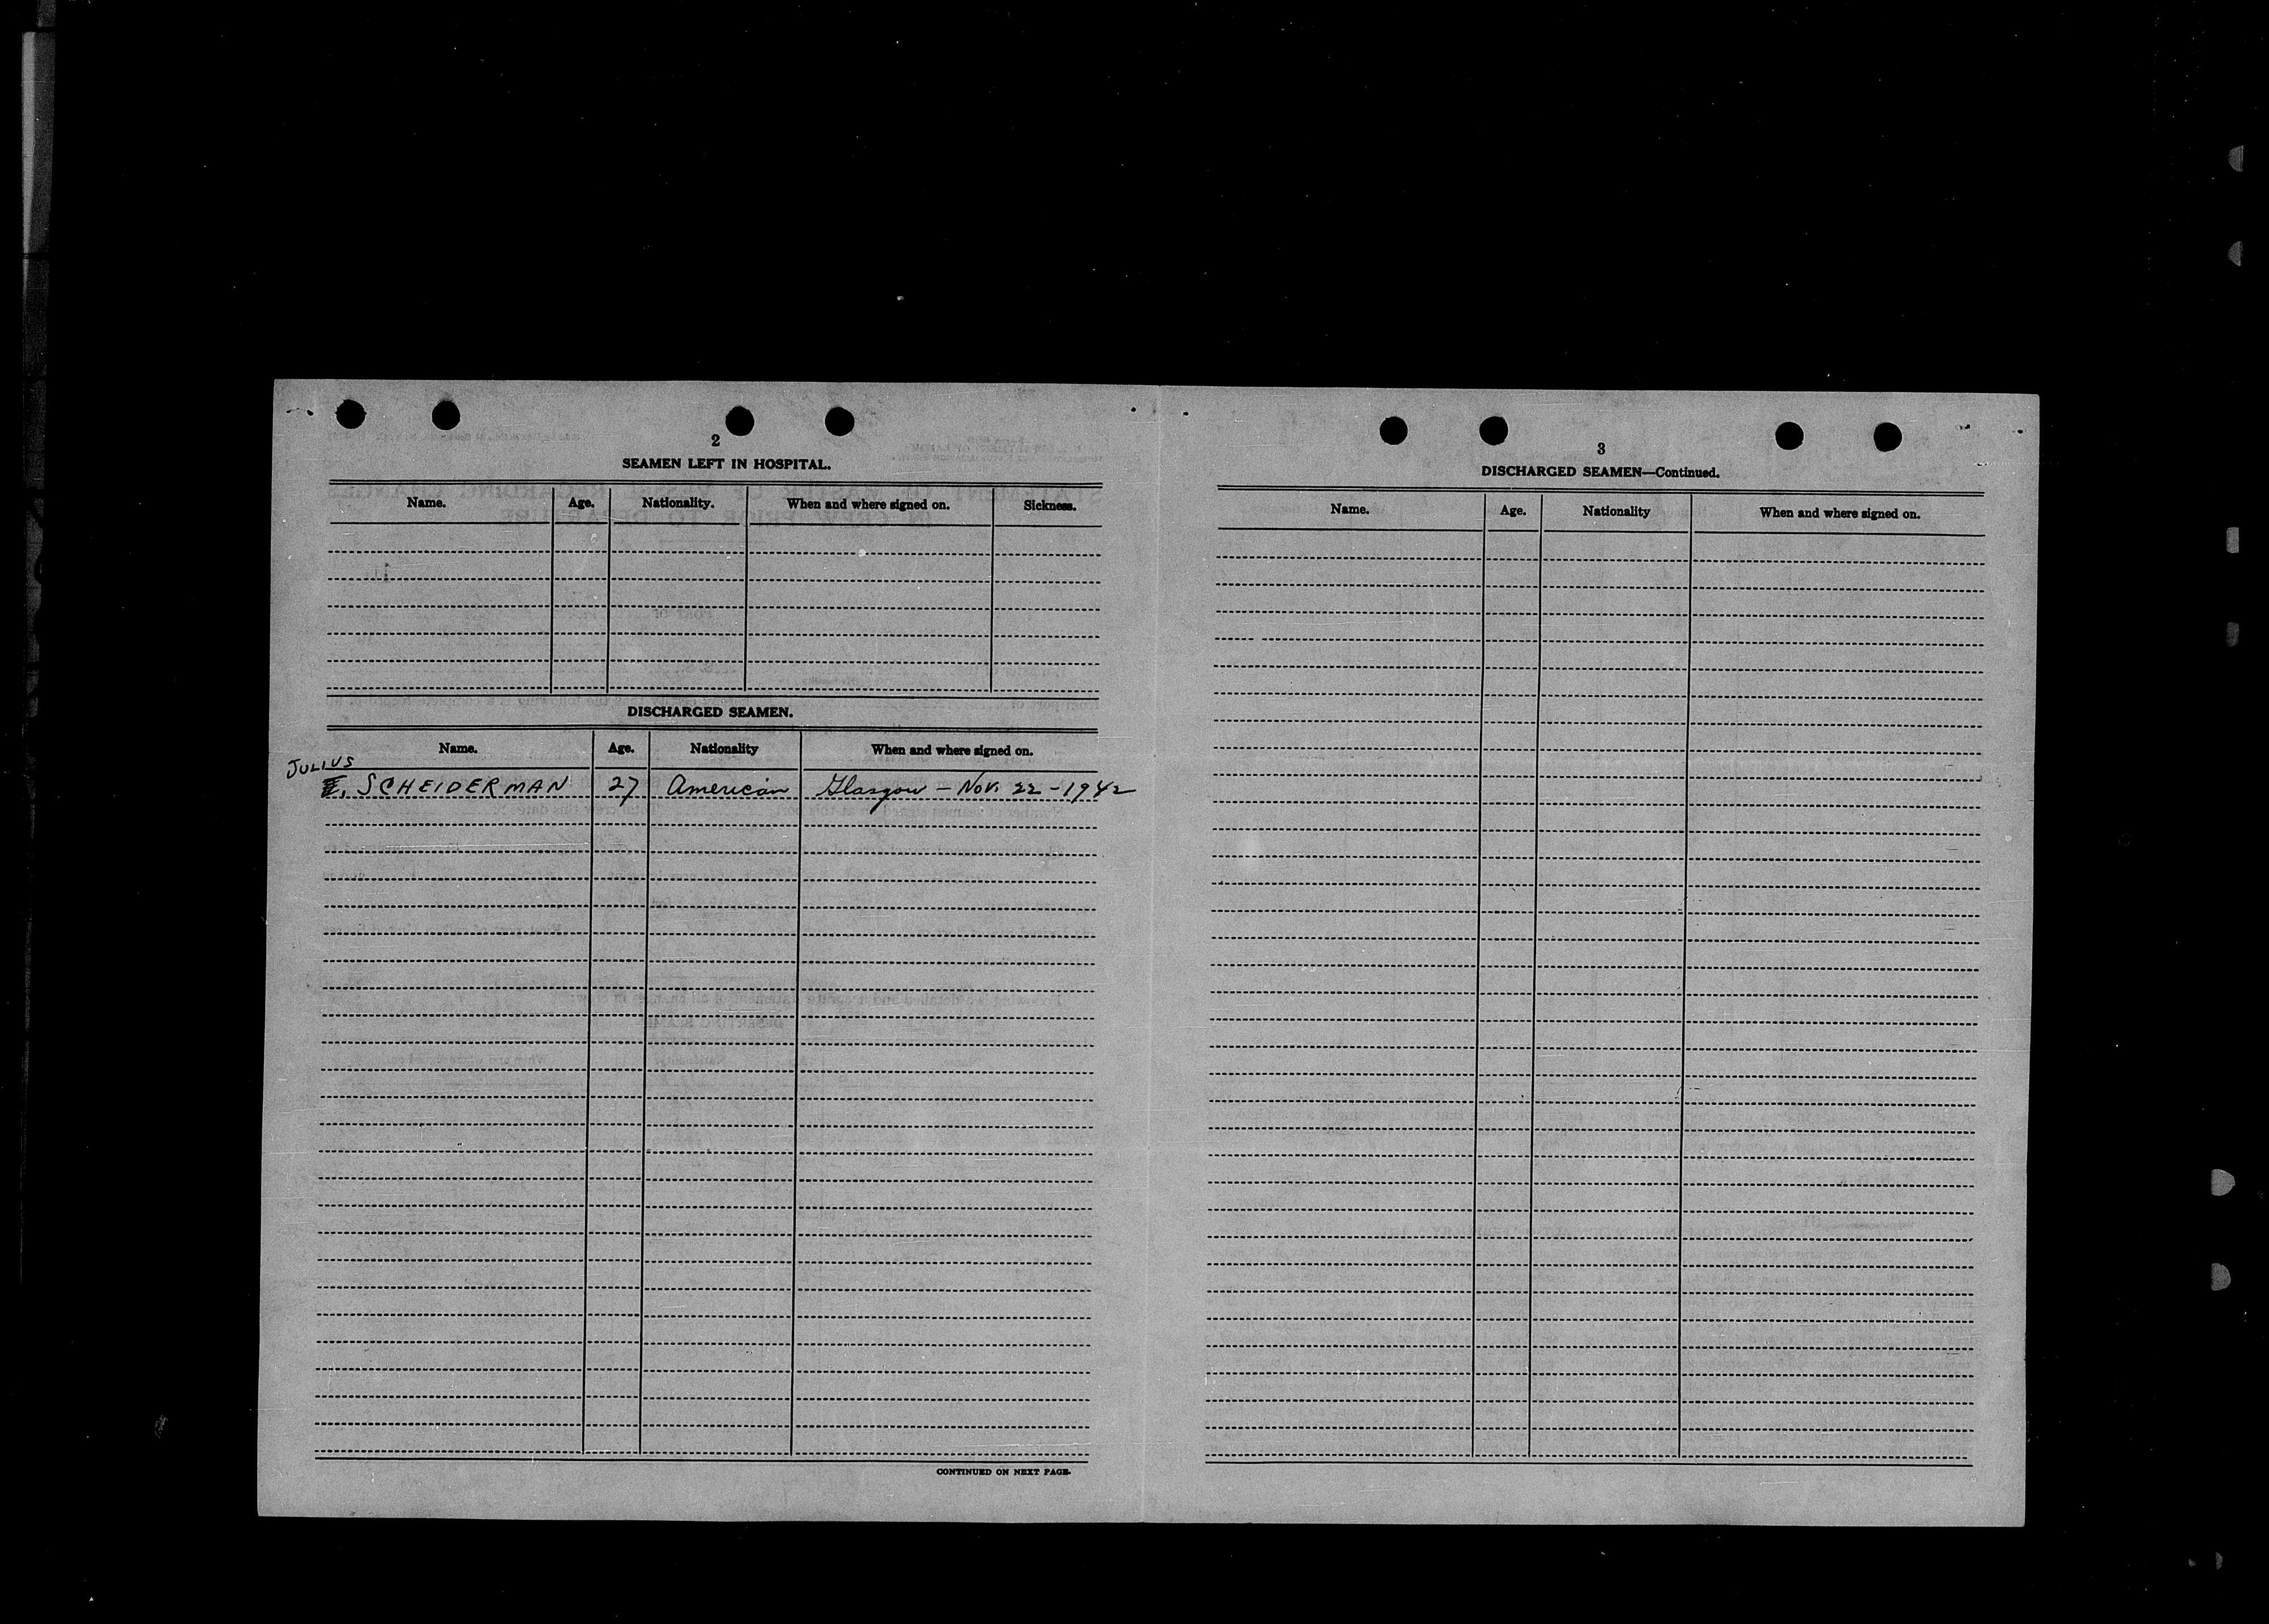 2
SEAMEN LEFT IN HOSPITAL.
Name. Age. Nationality. When and where signed on. Sickness.
DISCHARGED SEAMEN.
Name. Age. Nationality When and where signed on.
JULIUS
SCHEIDERMAN 27 American Glasgow - Nov. 22 - 1942
CONTINUED ON NEXT PAGE.
3
DISCHARGED SEAMEN—Continued.
Name. Age. Nationality When and where signed on.